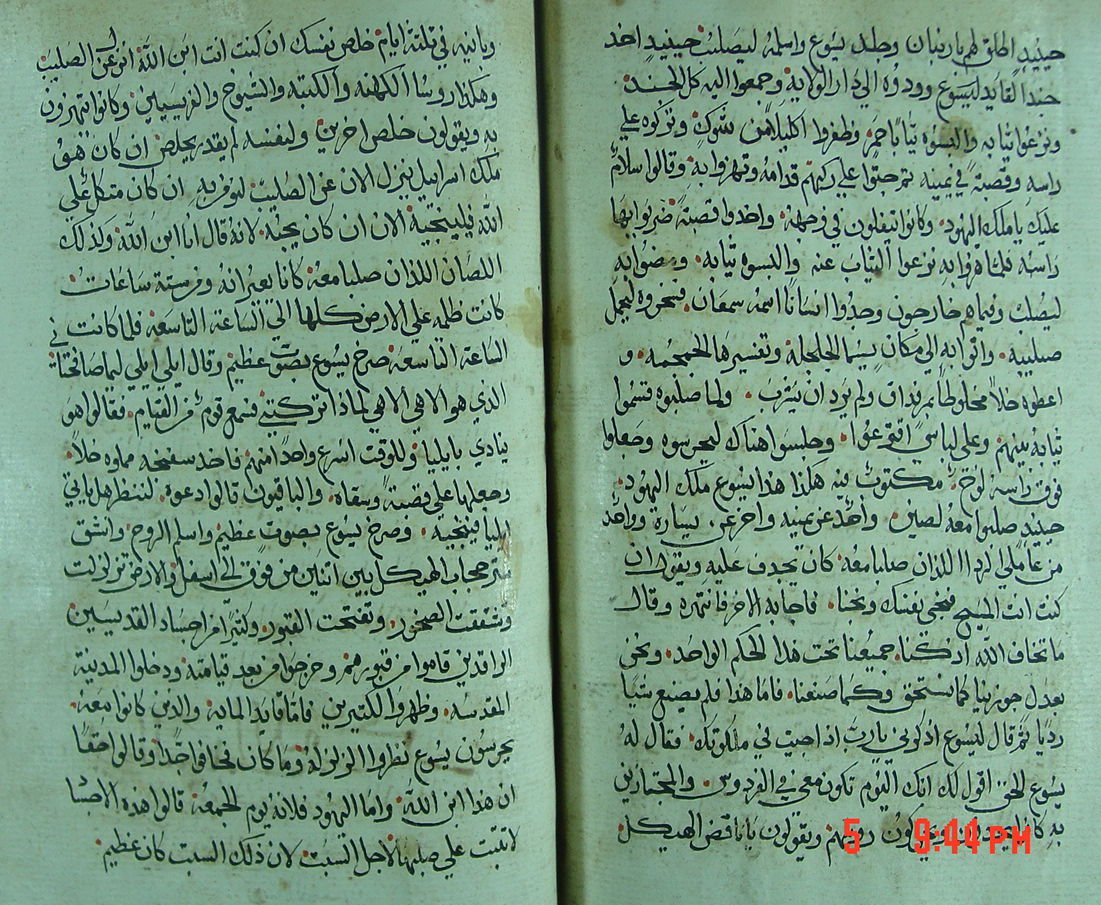 حينيدٍ اطلق لهم باربان وجلد يسوع واسلمه ليصلب حينيدٍ اخد
جند القايد ليسوع وودوه الي دار الولايه وجمعوا اليه كل الجند
ونزعوا تيابه والبسوه تيابًا حمر وظفروا اكليلاً من شوك وتركوه علي
راسه وقصبة في يمينه تم جتوا علي ركبهم قدامه وتهزوا به وقالوا سلام
عليك يا ملك اليهود وكانوا يتفلون في وجهه واخدوا قصبة ضربوا بها
راسه فلما هزوا به نزعوا التياب عنه والبسوه تيابه ومضوا به
ليصلب وفيما هم خارجون وجدوا انسانًا اسمه سمعان فسخروه ليحمل
صليبه واتوا به الي مكان يسما الجلجلة وتفسيرها الجمجمه و
اعطوه خلاً مخلوطًا بمر فداق ولم يرد ان يشرب ولما صلبوه قسموا
تيابه بينهم وعلي لباسي اقترعوا وجلسوا هناك ليحرسوه وجعلوا
فوق راسه لوح مكتوب فيه هكذا هذا يسوع ملك اليهود
حينيدٍ صلبوا معه لصين واحد عن يمينه واخر عن يساره وواحد
من عاملي الردا اللذان صلبا معه كان يجدف عليه ويقول ان
كنت انت المسيح فنجي نفسك ونجنا فاجابه الاخر فانتهره وقال
ما تخاف الله ادكنا جميعنا تحت هذا الحكم الواحد ونحن
بعدل جوزينا كما نستحق وكما صنعنا فاما هذا فلم يصنع شيا
رديًا تم قال ليسوع ادكرني يارب اذا جيت في ملكوتك فقال له
يسوع الحق اقول لك انك اليوم تكون معي في الفردوس والمجتازين
به كانوا يجدفون ويحركون روسهم ويقولون يا ناقض الهيكل
5 9:44 PM
وبانيه في تلتة ايام خلص نفسك ان كنت انت ابن الله انزل عن الصليب
وهكذا روسا الكهنه والكتبه والشيوخ والفريسيين وكانوا يتهزون
به ويقولون خلص اخرين ولنفسه لم يقدر يخلص ان كان هو
ملك اسراييل ينزل الان عن الصليب لنومن به ان كان متكل علي
الله فلينجيه الان ان كان يحبه لانه قال انا ابن الله وكذلك
اللصان اللذان صلبا معه كانا يعيرانه ومن ستة ساعات
كانت ظلمه علي الارض كلها الي الساعة التاسعة فلما كانت في
الساعة التاسعة صرخ يسوع بصوت عظيم وقال ايلي ايلي ليما صافختا
الذي هو الاهي الاهي لماذا تركتني فسمع قوم من القيام فقالوا هو
ينادي بايليا وللوقت اسرع واحدًا منهم فاخد سفنجه مملوه خلاً
وجعلها علي قصبة وسقاه والباقيون قالوا دعوه لننظر هل ياتي
ايليا فينجيه وصرخ يسوع بصوت عظيم واسلم الروح وانشق
ستر حجاب الهيكل بين اتنين من فوق الي اسفل والارض تزلزلت
وتشققت الصخور وتفتحت القبور وكتيرًا من اجساد القديسين
الراقدين قاموا من قبورهم وخرجوا من بعد قيامته ودخلوا المدينة
المقدسه وظهروا لكتيرين فاما قايد الماية والذين كانوا معه
يحرسون يسوع نظروا الزلزلة وما كان فخافوا جدًا وقالوا حقًا
ان هذا ابن الله واما اليهود فلانه يوم الجمعة قالوا هذه الاجسا
لا تتبت علي صلبها لاجل السبت لان ذلك السبت كان عظيم